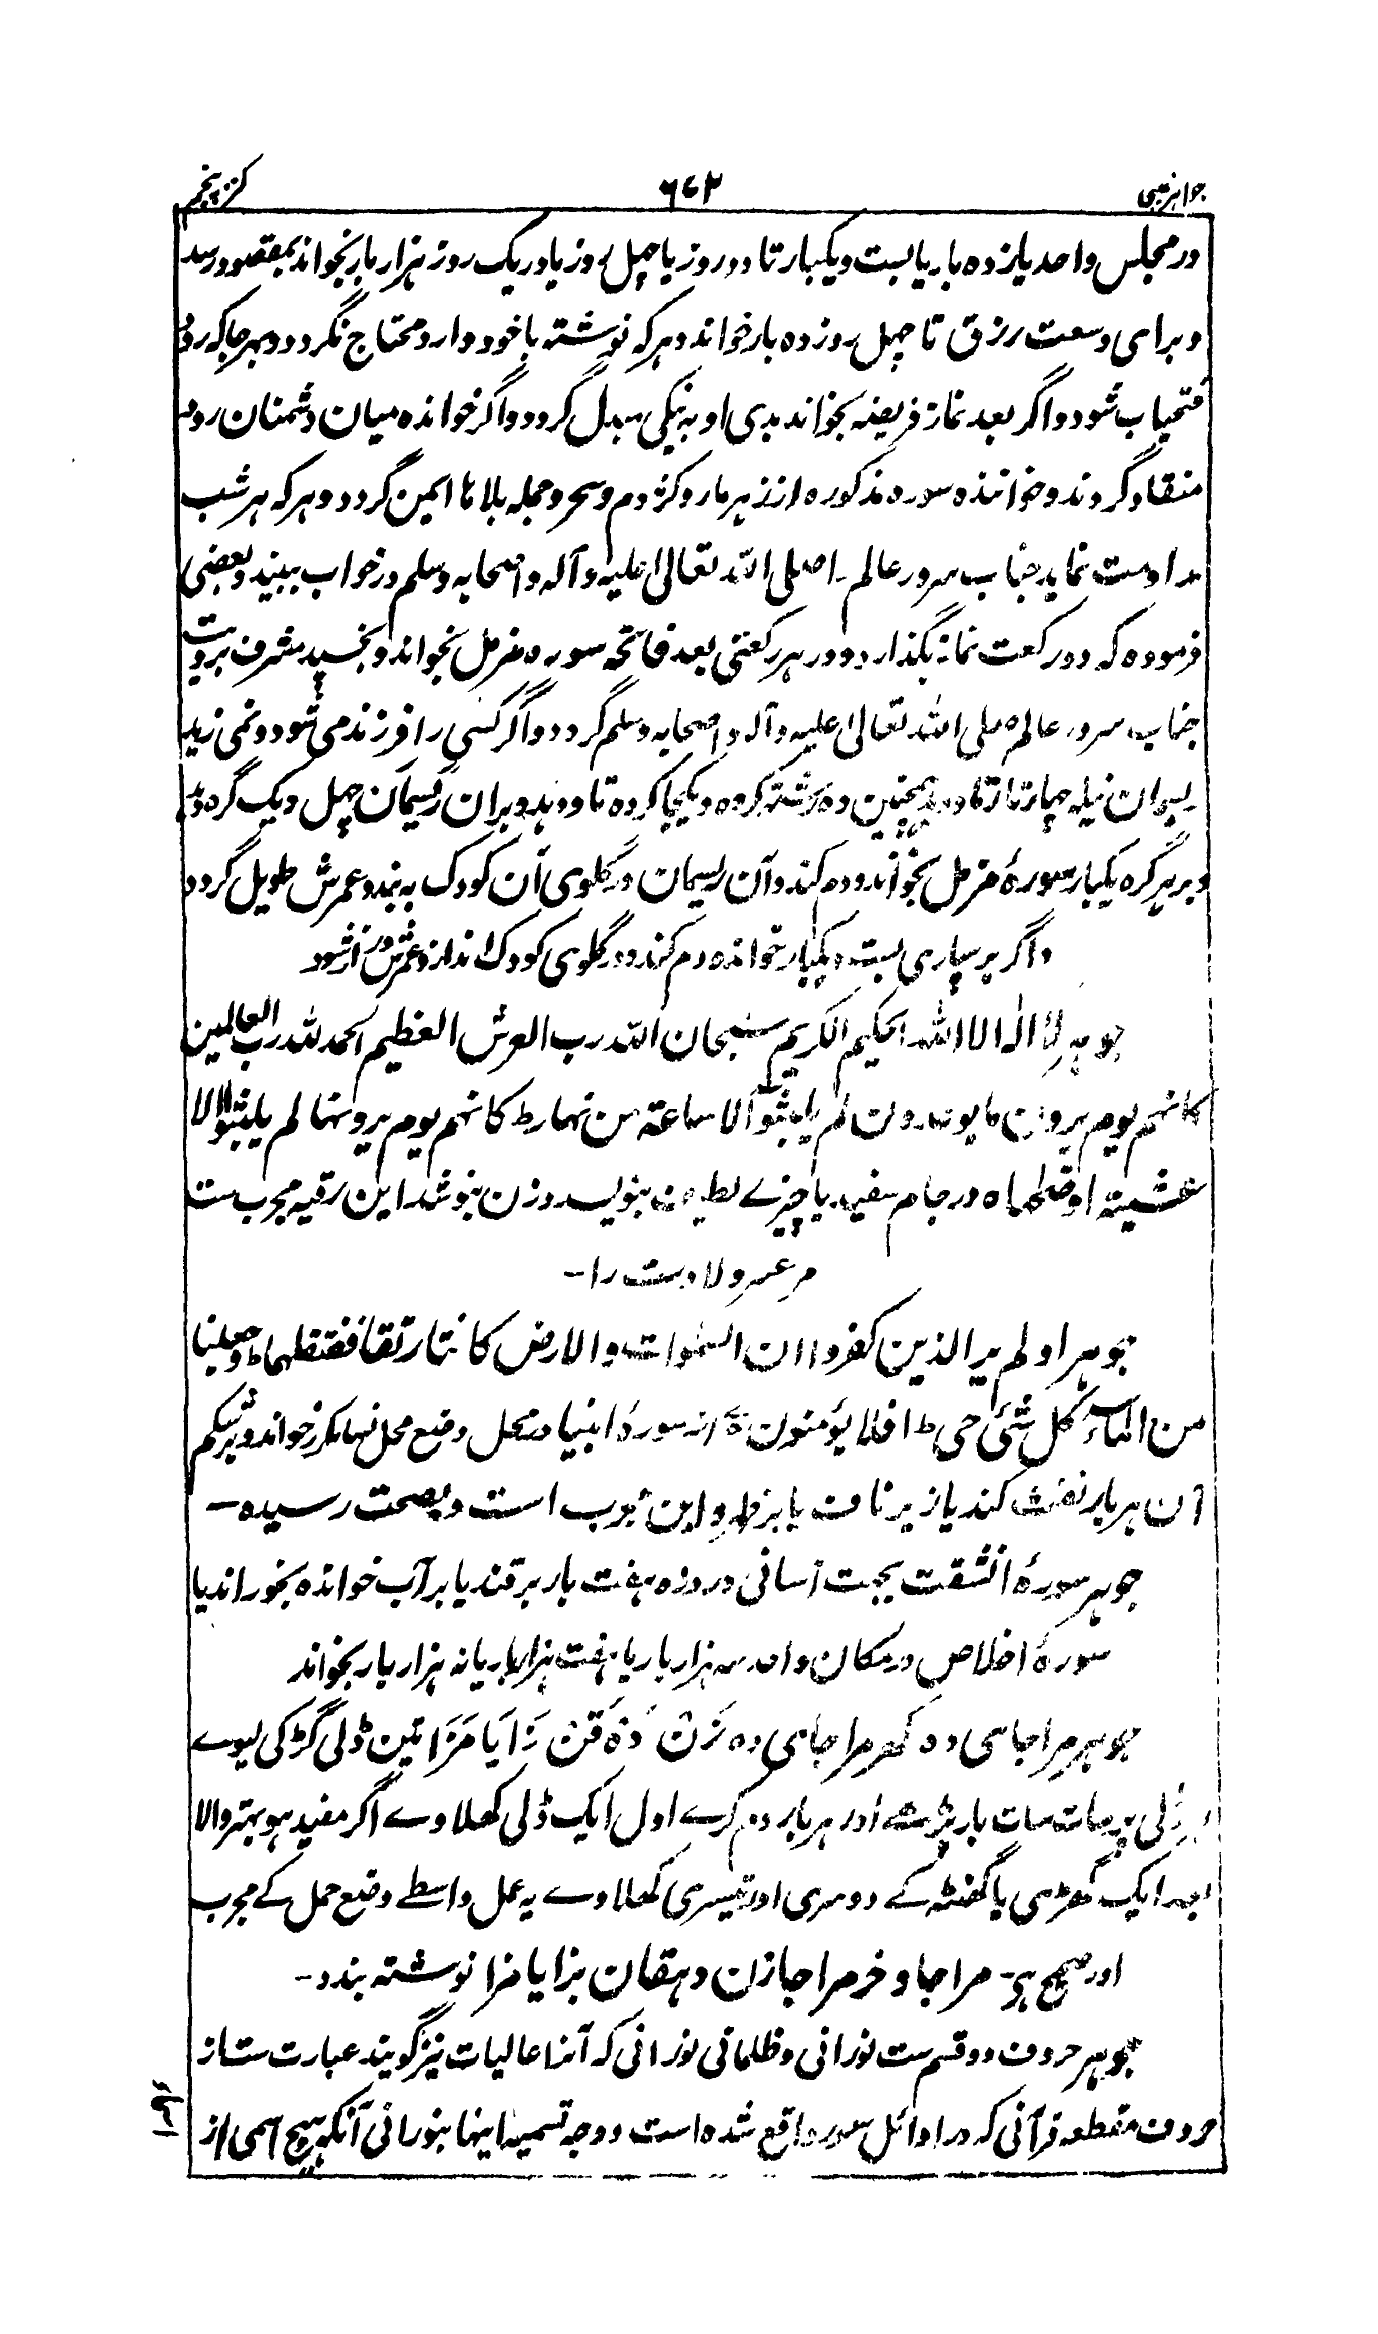 جواہر غیبی ۶۷۲ کنز پنجم
در مجلس واحد یازده بار یا بست و یکبار تا دو روز یا چهل روز یا در یک روز هزار بار بخواند بمقصود رسد
و برای وسعت رزق تا چهل روز ده بار خواند و هر که نوشته با خود دارد محتاج نگردد و بهر جا که رود
فتحیاب شود و اگر بعد نماز فریضه بخواند بدی او به نیکی مبدل گردد و اگر خوانده میان دشمنان رود
منقاد گردند و خوانندہ سورہ مذکورہ از زہر مار و کژدم و سحر و جملہ بلاہا ایمن گردد و ہر کہ ہر شب
مداومت نماید جناب سرور عالم را صلی اللہ تعالیٰ علیہ وآلہ واصحابہ وسلم در خواب ببیند و بعضی
فرمودہ کہ دو رکعت نماز بگذارد و در ہر رکعتی بعد فاتحہ سورہ مزمل بخواند و بخسپد مشرف برویت
جناب سرور عالم صلی اللہ تعالیٰ علیہ وآلہ واصحابہ وسلم گردد و اگر کسی را فرزند می شود و نمی زید
ریسمان نیلہ چہار تار تا دہد ہمچنین دہ رشتہ کردہ و یکجا کردہ تا دہد و بران ریسمان چہل و یک گرہ دہد
و بر ہر گرہ یکبار سورۂ مزمل بخواند و دم کند و آن ریسمان در گلوی آن کودک بہ بندد عمرش طویل گردد
و اگر بر سپاری بست و یکبار خواندہ دم کند و در گلوی کودک اندازد عمرش دراز شود
جوہر لا الہ الا اللہ الحکیم الکریم سبحان اللہ رب العرش العظیم الحمد للہ رب العالمین
کانہم یوم یرون ما یوعدون لم یلبثوا الا ساعۃ من نہار ط کانہم یوم یرونہا لم یلبثوا الا
عشیۃ او ضحاہا ہ در جام سفید یا چیزے لطیف بنویسد و زن بنوشد این رقیہ مجرب ست
مر عسر ولادت را-
جوہر اولم یر الذین کفروا ان السمٰوات والارض کانتا رتقا ففتقناہما ط وجعلنا
من الماء کل شئی حی ط افلا یؤمنون ہ از سورۂ انبیا در محل وضع حمل تنہا مکرر خواند و بر شکم
آن ہر بار نفث کند یا زیر ناف یا بر ظہر و این مجرب است و بصحت رسیدہ-
جوہر سورۂ انشقت بجہت آسانی در وزہ ہفت بار بر قند یا بر آب خواندہ بخوراند یا
سورۂ اخلاص در مکان واحد سہ ہزار بار یا ہفت ہزار بار یا نہ ہزار بار بخواند
جوہر مرا جای دہ کھر مرا جای دہ زن دہ قن زا یا مزا تین ڈلی گڑ کی لیوے
ہر ڈلی پر سات سات بار پڑھے اور ہر بار دم کرے اول ایک ڈلی کھلاوے اگر مفید ہو بہتر والا
بعد ایک گھڑی یا گھنٹہ کے دوسری اور تیسری کھلاوے یہ عمل واسطے وضع حمل کے مجرب
اور صحیح ہے- مرا جا و خر مرا جا زن دہقان بزا یا مزا نوشتہ بندد-
جوہر حروف دو قسم ست نورانی و ظلمانی نورانی کہ آنرا عالیات نیز گویند عبارت ست از
حروف مقطعہ قرآنی کہ در اوائل سور واقع شدہ است و وجہ تسمیہ اینہا بنورانی آنکہ ہیچ اسمی از